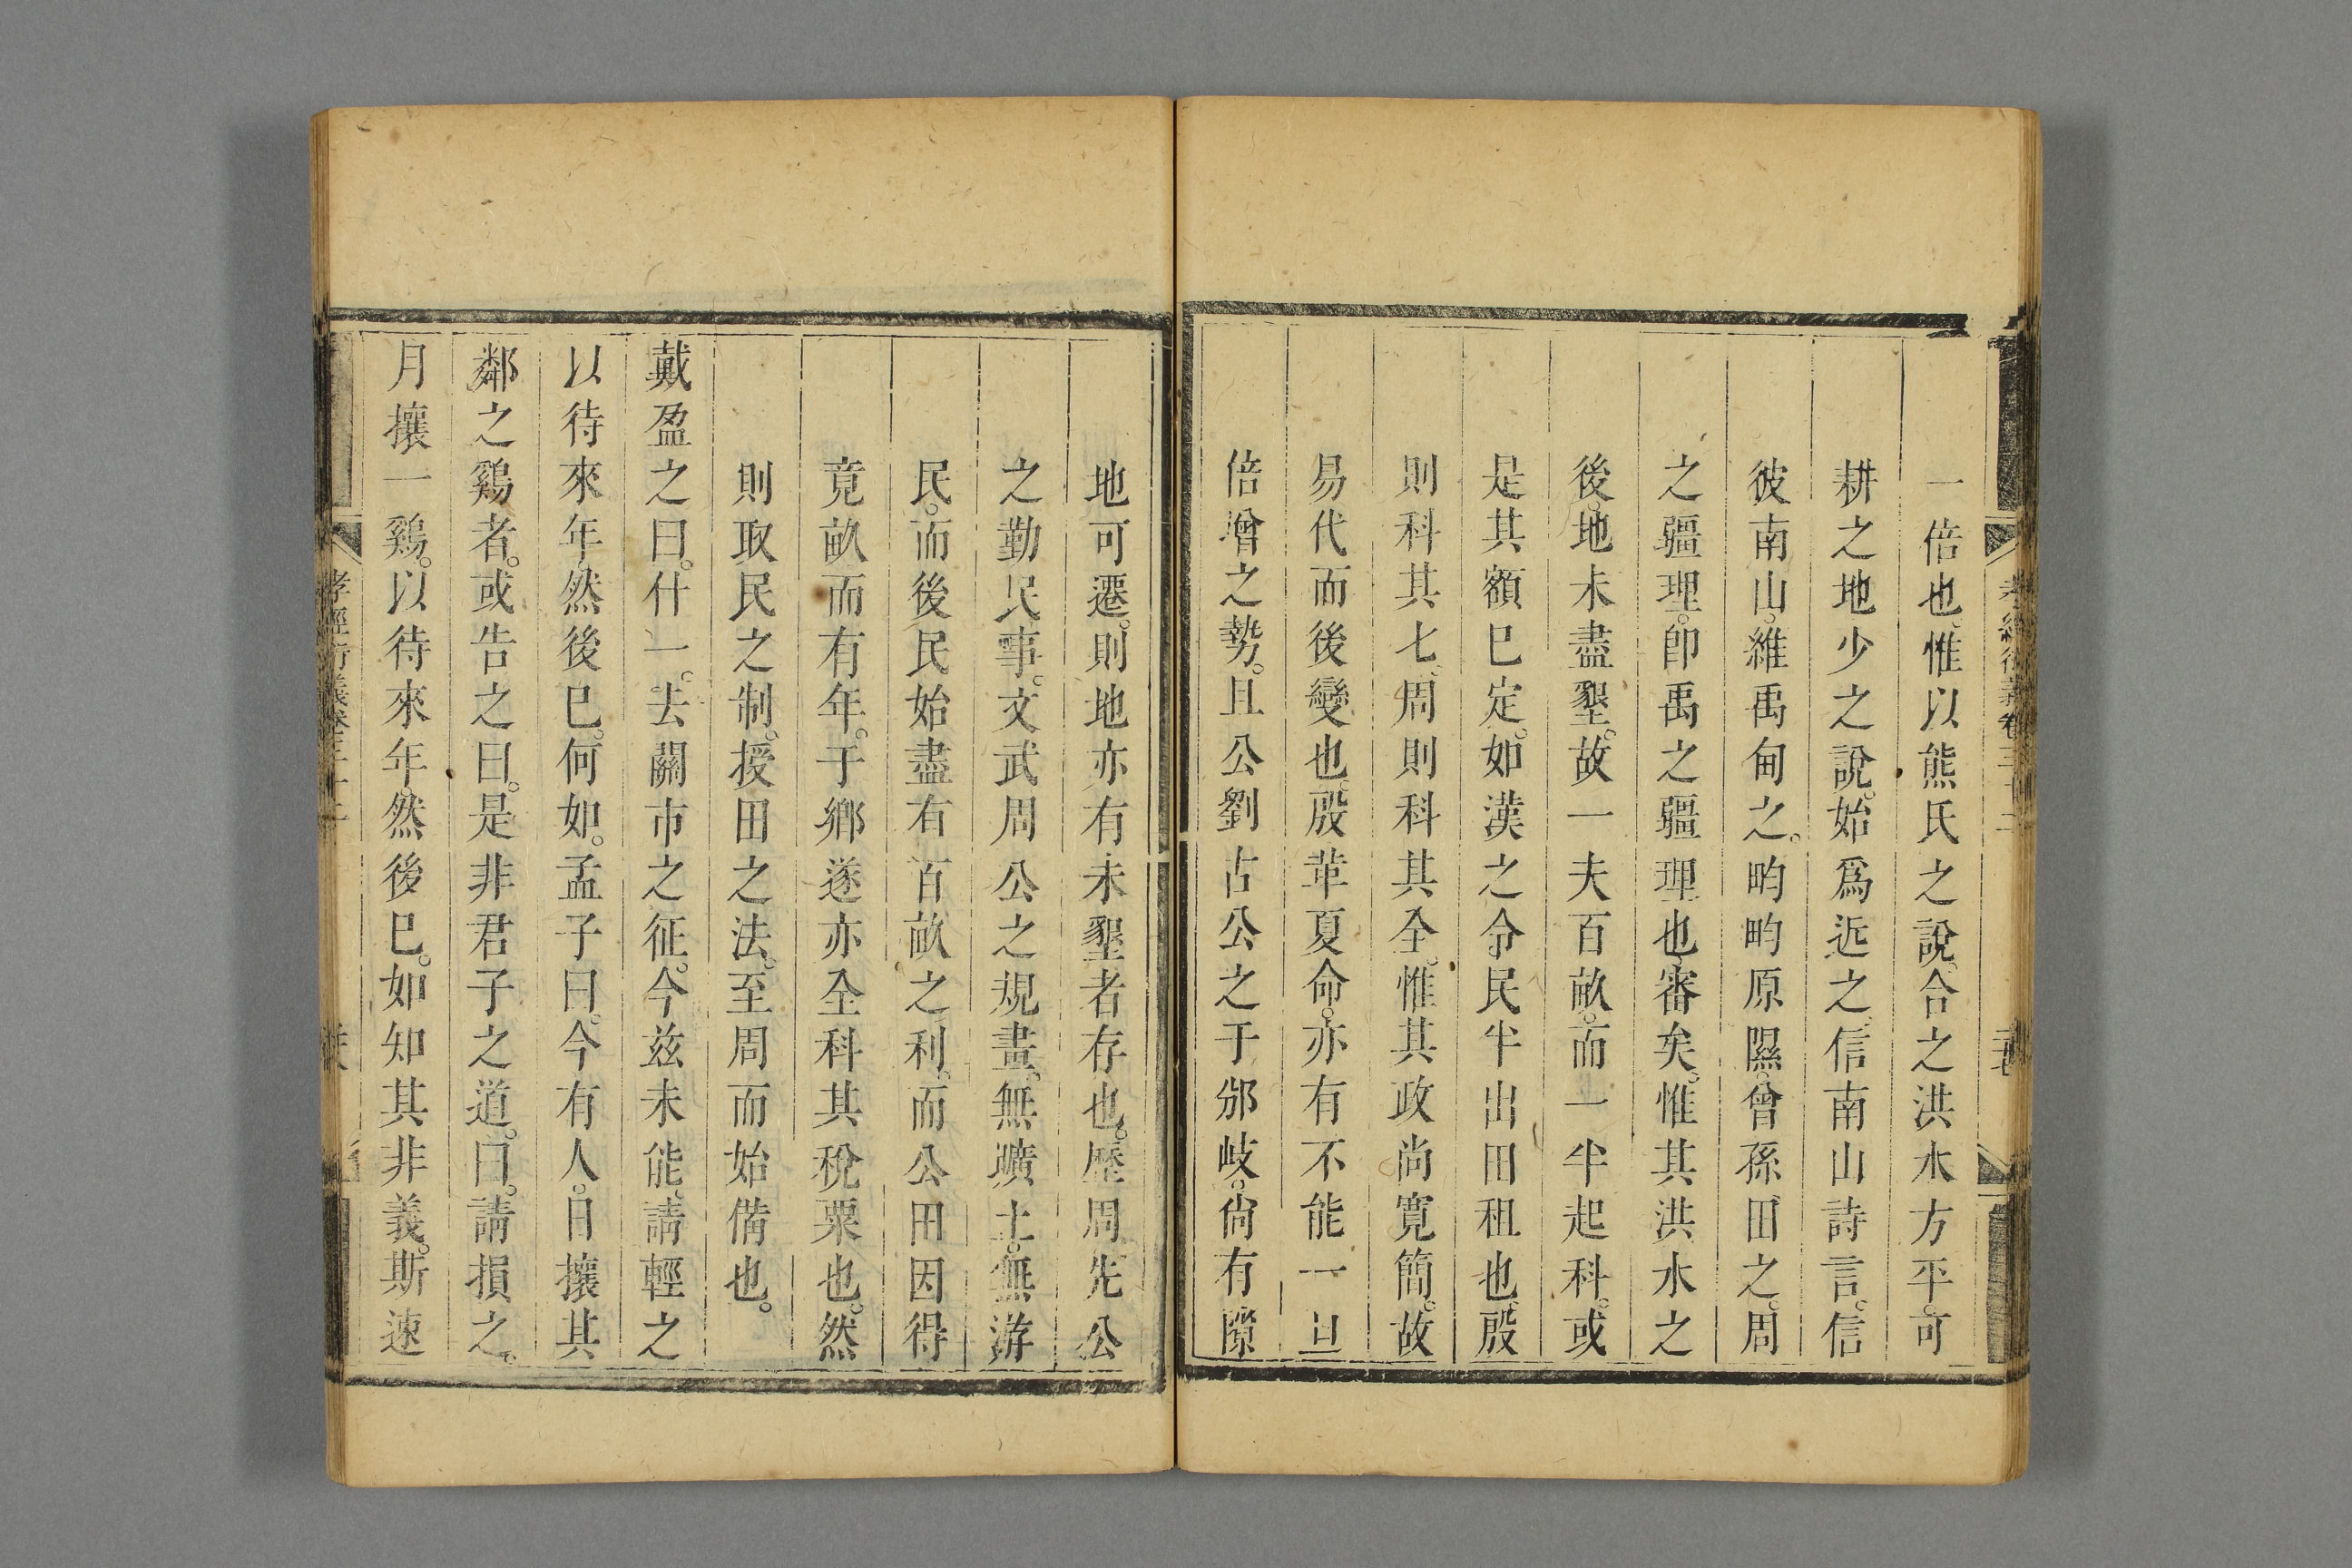 一倍也惟以熊氏之說合之洪水方平可
耕之地少之說始爲近之信南山詩言信
彼南山維禹甸之畇畇原隰曾孫田之周
之疆理卽禹之疆理也審矣惟其洪水之
後地未盡墾故一夫百畝而一半起科或
是其額已定如漢之令民半出田租也殷
則科其七周則科其全惟其政尚寬簡故
易代而後變也殷革夏命亦有不能一旦
倍增之勢且公劉古公之于邠岐尙有隙
地可遷則地亦有未墾者存也歷周先公
之勤民事文武周公之規畫無曠土無游
民而後民始盡有百畝之利而公田因得
竟畝而有年于鄉遂亦全科其稅粟也然
則取民之制授田之法至周而始備也
戴盈之曰什一去關市之征今茲未能請輕之
以待來年然後已何如孟子曰今有人日攘其
鄰之鷄者或告之曰是非君子之道曰請損之
月攘一鷄以待來年然後已如知其非義斯速
孝經衍義卷三十二